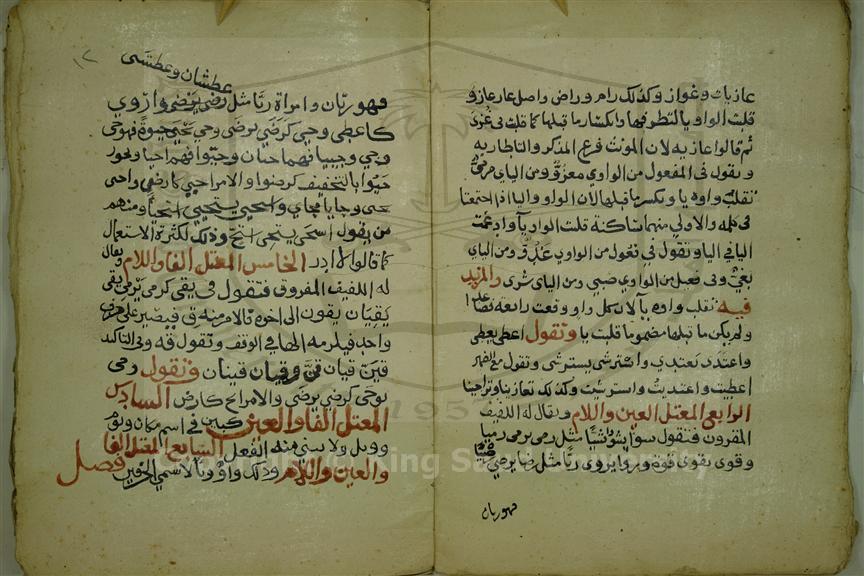 عازيات وغواز وكذلك رام وراض واصل عاز عازو
قلبت الواو يا لتطرفها وانكسار ما قبلها كما قلبت في غزى
ثم قالوا عازيه لان المونث فرع المذكر والتا طاريه
وتقول في المفعول من الواوي مغزو ومن الياي مرمي
تقلب واوه يا ويكسر ما قبلها لان الواو واليا اذا اجتمعتا
في كلمه والاولي منهما ساكنة قلبت الواو يآ وادغمت
اليا في اليا وتقول في فعول من الواوي عدو ومن الياي
بغي وفي فعيل من الواوي صبي ومن الياي شرى والمزيد
فيه تقلب واوه يآ لان كل واو وقعت رابعة فصاعدا
ولم يكن ما قبلها مضموما قلبت يا وتقول اعطى يعطى
واعتدى يعتدي واسترشى يسترشى وتقول مع الضمير
اعطيت واعتديت واسترشيت وكذلك تغازينا وتراجينا
الرابع المعتل العين واللام ويقال له اللفيف
المقرون فتقول شوا يشوى شيّا مثل رمى يرمى رميا
وقوى يقوى قوة وروا يروى ريّا مثل رضا يرضى
فهو ريان
١٢
عطشان وعطشى
فهو ريّان وامراة ريّا مثل رضي يرضى واروي
كاعطى وحيي كرضي يرضى وحي يحيى حيوة فهو حي
وحي وحييا فهما حيان وحيوا فهم احيا ويجوز
حيوا بالتخفيف كرضوا والامر احي كارض واحى
يحيى وحايا يحاي واستحيى يستحيى استحيآ ومنهم
من يقول استحى يستحى استح وذلك لكثرة الاستعمال
كما قالوا لا ادر الخامس المعتل الفا واللام ويقال
له اللفيف المفروق فتقول في يقى كرمى يرمى يقى
يقيان يقون الى اخره والامر منه ق فيصير على حرف
واحد فيلزمه الها في الوقف وتقول قه وفي التاكيد
قين قيان قن وقيان قينان فتقول وجى
يوجى كرضي يرضى والامر ايج كارض السادس
المعتل الفا والعين كيين في اسم مكان ويوم
وويل ولا يبنى منه الفعل السابع المعتل الفا
والعين واللام وذلك واو ويآ لاسمي الحرفين فصل